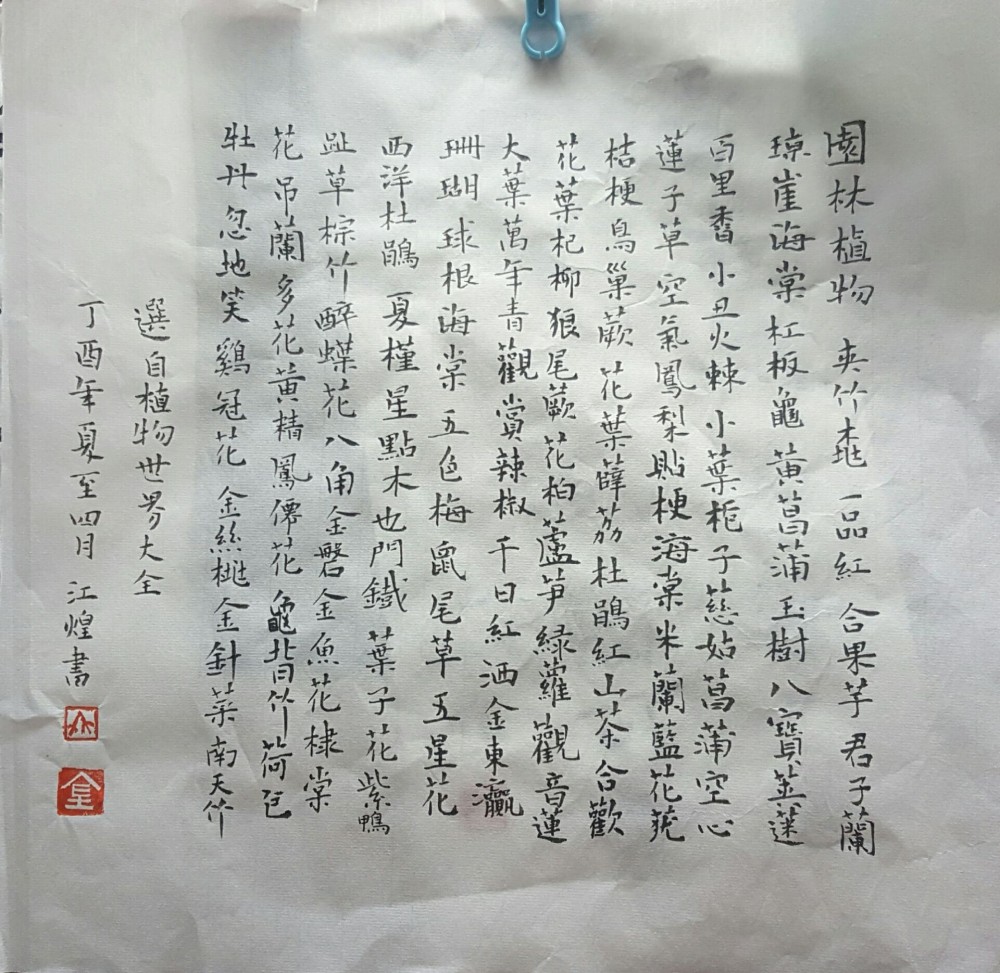 園林植物 夾竹桃 一品紅 合果芋 君子蘭
瓊崖海棠 杠板龜 黃菖蒲 玉樹 八寶莢蒾
百里香 小丑火棘 小葉梔子 慈姑 菖蒲 空心
蓮子草 空氣鳳梨 貼梗海棠 米蘭 藍花莸
桔梗 鳥巢蕨 花葉薜荔 杜鵑紅山茶 合歡
花葉杞柳 狼尾蕨 花柏 蘆笋 綠蘿 觀音蓮
大葉萬年青 觀賞辣椒 千日紅 洒金東瀛
珊瑚 球根海棠 五色梅 鼠尾草 五星花
西洋杜鵑 夏槿 星點木 也門鐵 葉子花 紫鴨
趾草 棕竹 醉蝶花 八角金磐 金魚花 棣棠
花吊蘭 多花黃精 鳳僊花 龜背竹 荷包
牡丹 忽地笑 鷄冠花 金絲桃 金針菜 南天竹
選自植物世界大全
丁酉年夏至四月 江煌書